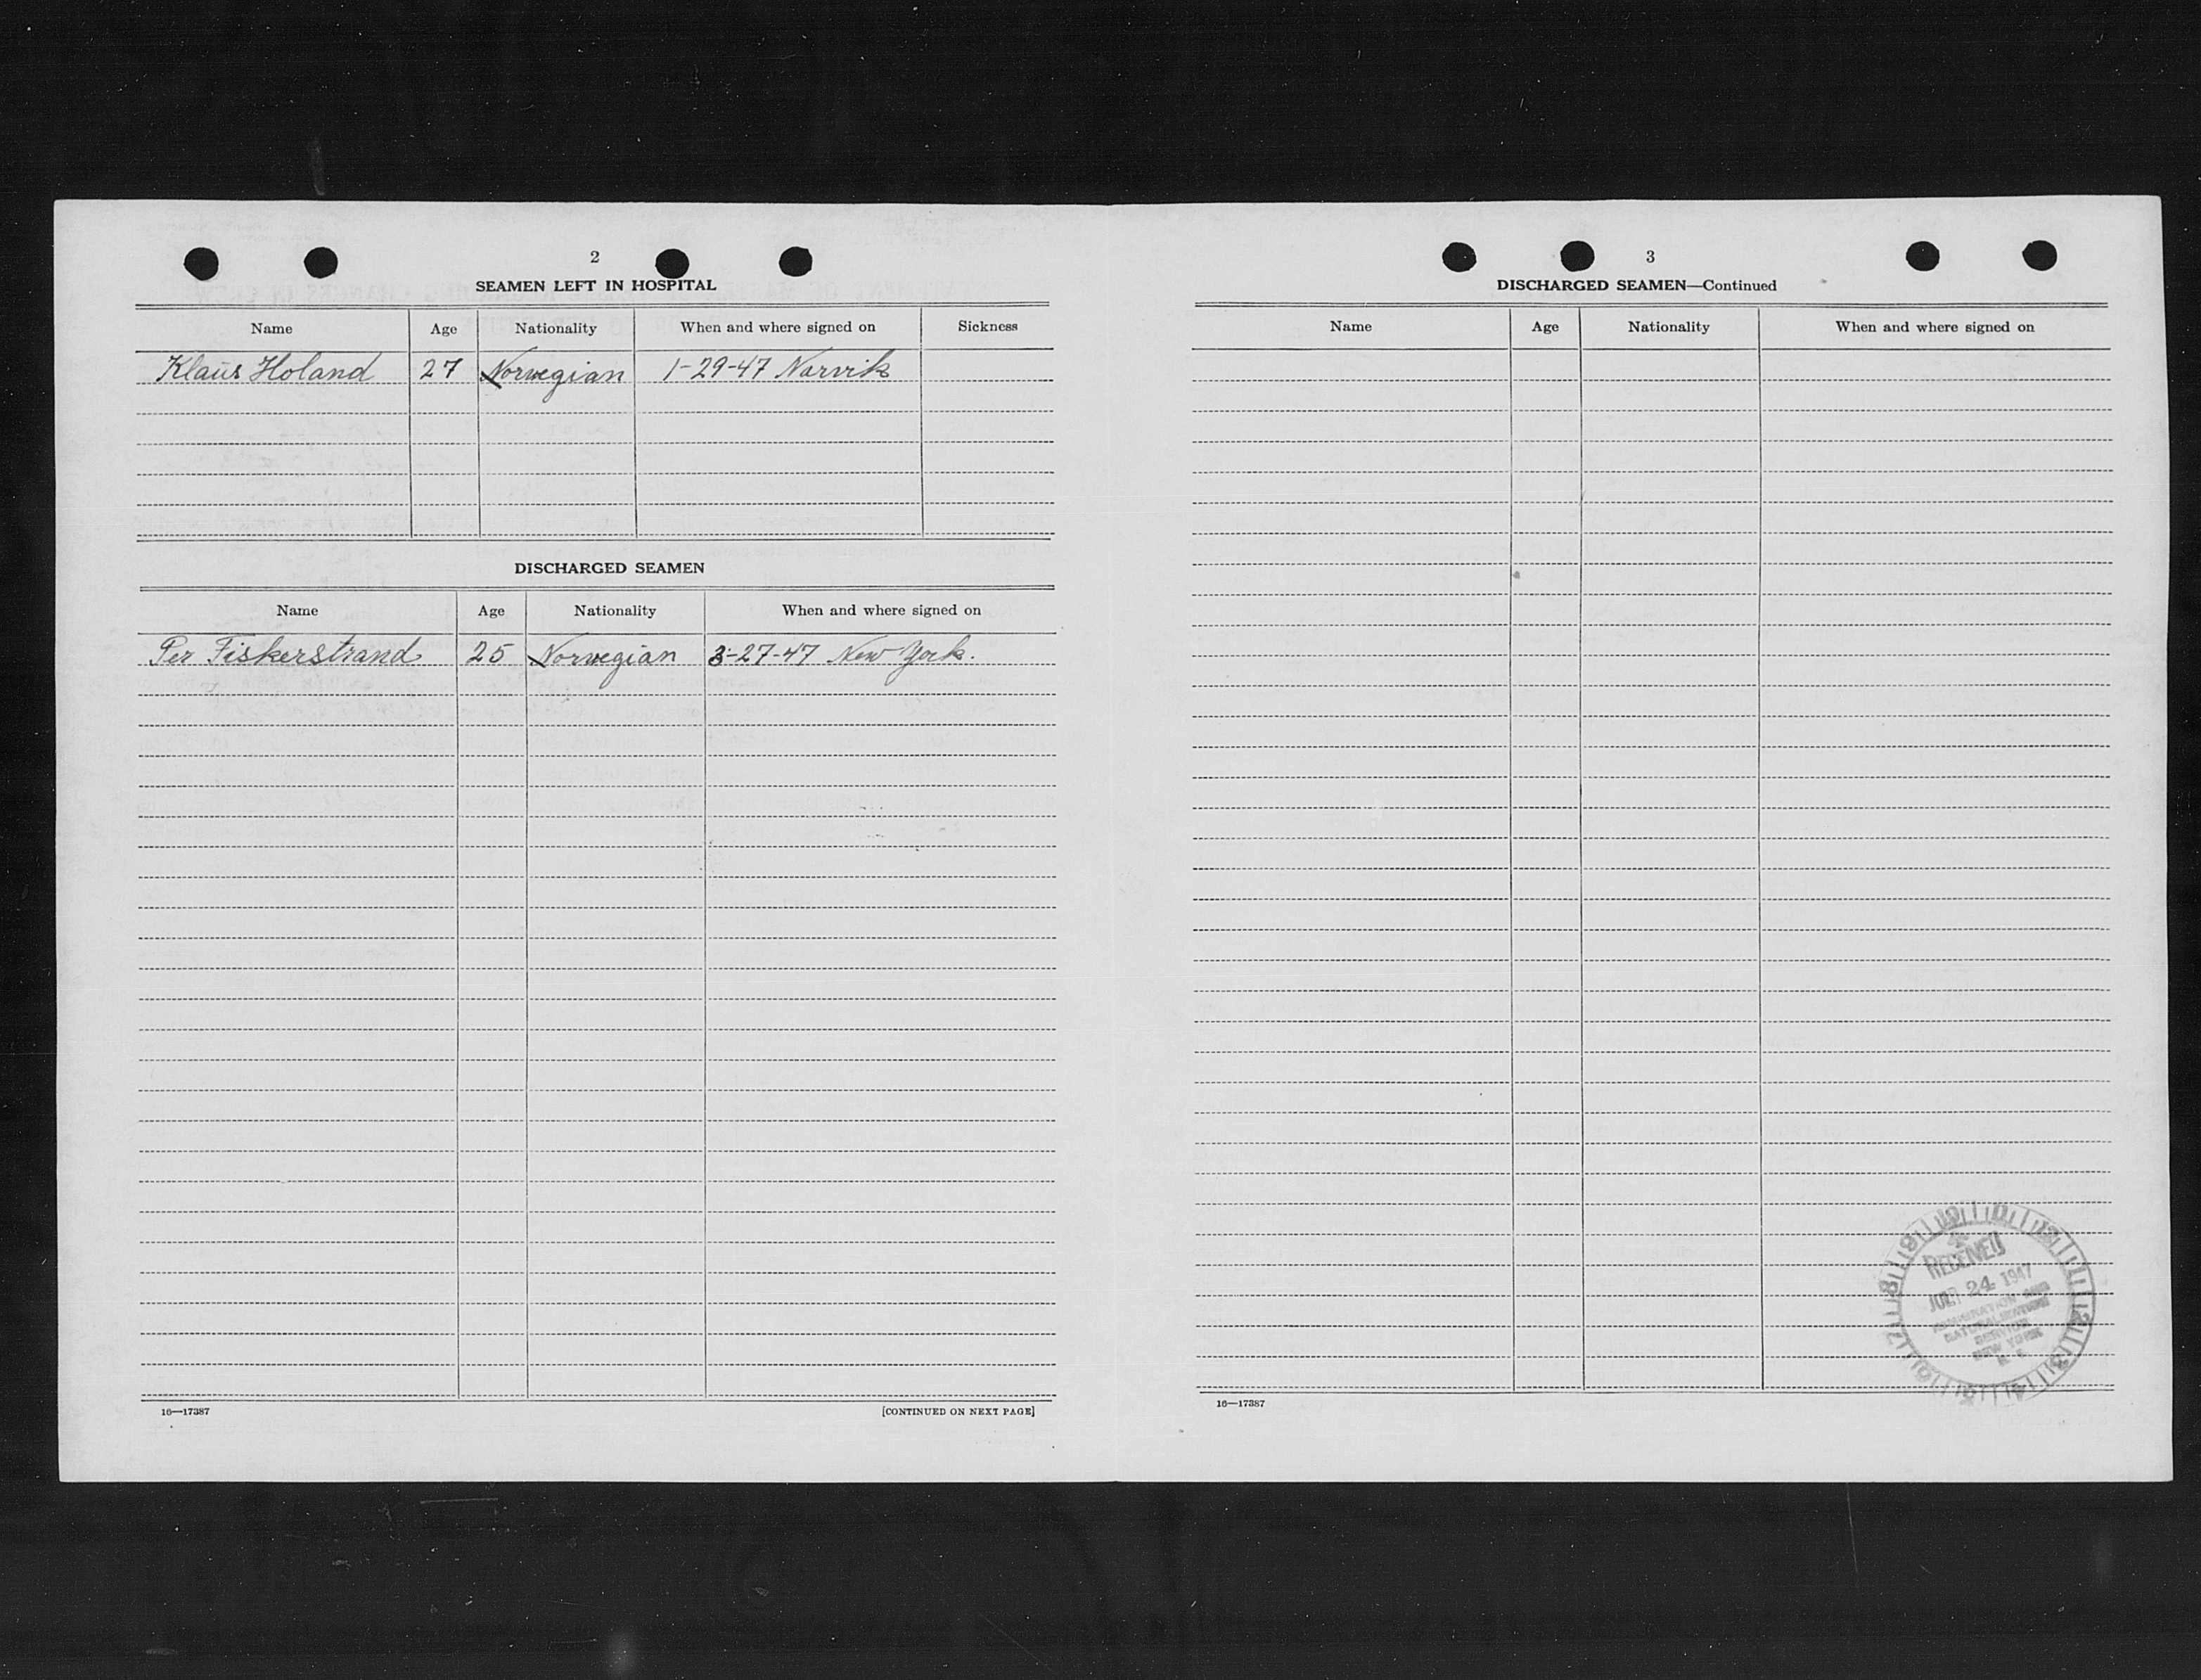 2
SEAMEN LEFT IN HOSPITAL
Name Age Nationality When and where signed on Sickness
Klaus Holand 27 Norwegian 1-29-47 Narvik
DISCHARGED SEAMEN
Name Age Nationality When and where signed on
Per Fiskerstrand 25 Norwegian 3-27-47 New York.
16—17387 [CONTINUED ON NEXT PAGE]
3
DISCHARGED SEAMEN—Continued
Name Age Nationality When and where signed on
RECEIVED
24 1947
IMMIGRATION AND
NATURALIZATION
SERVICE
NEW YORK
N. Y.
16—17387